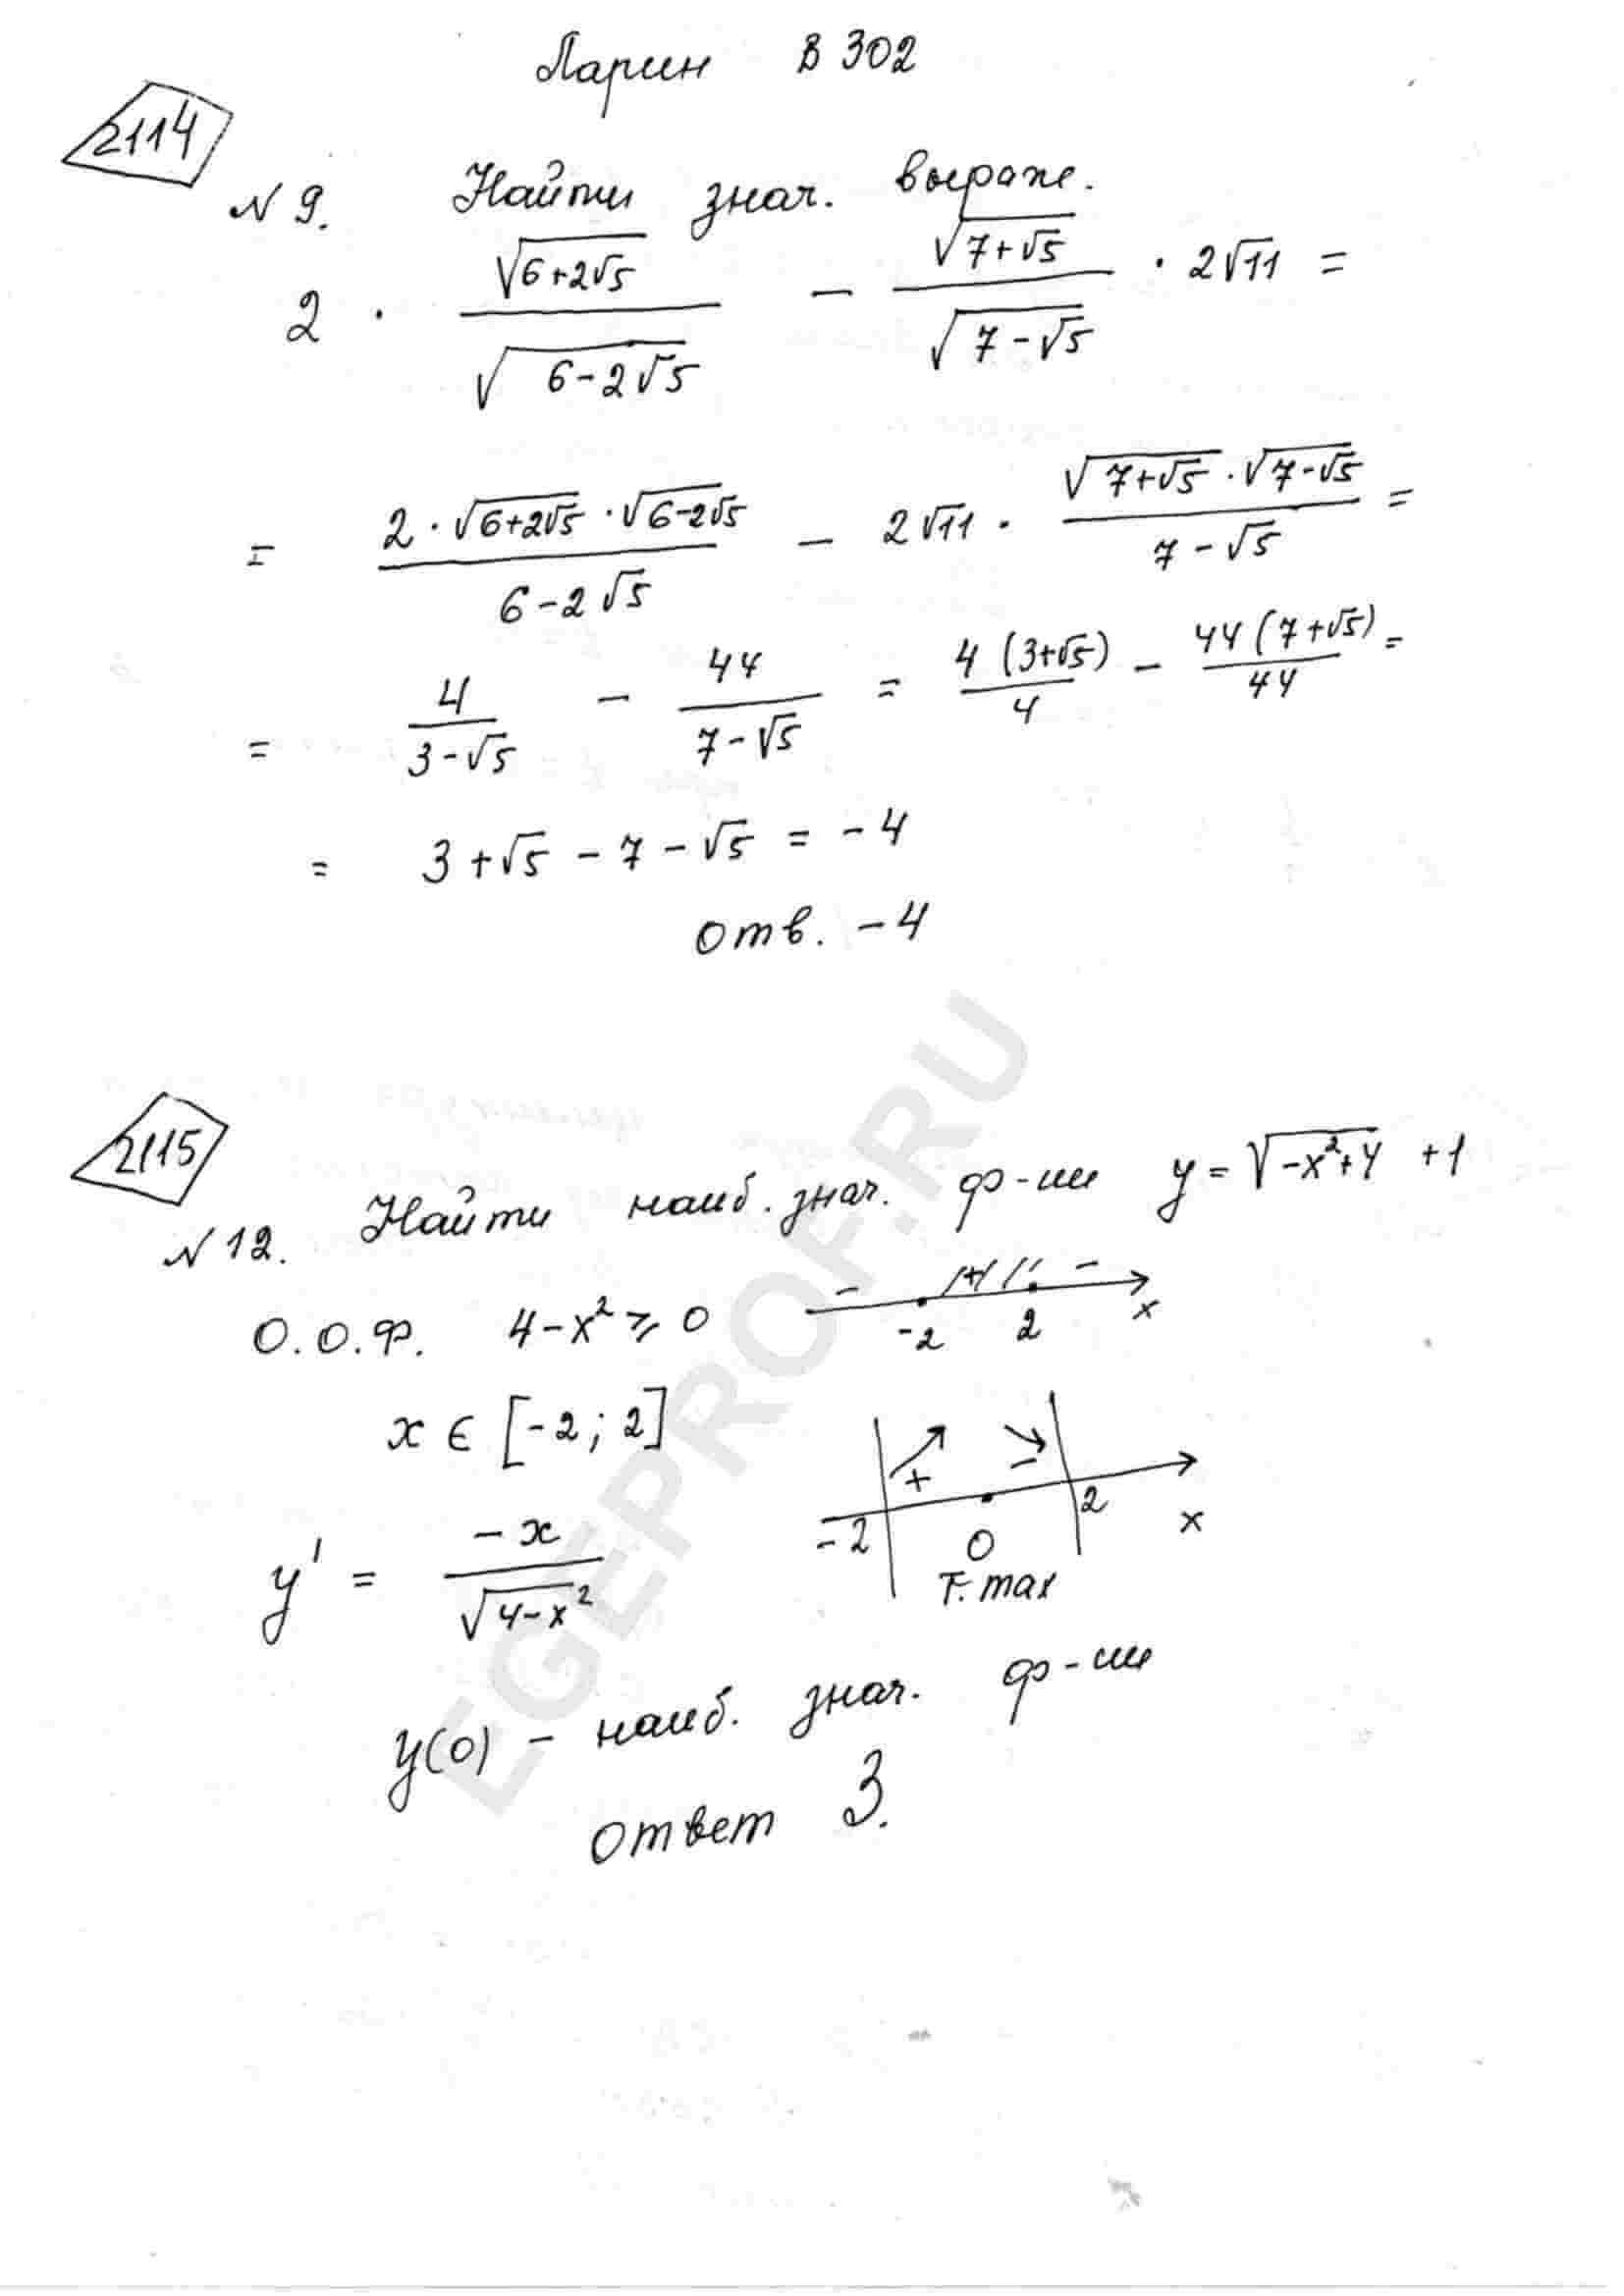 Ларин В 302
2114
№ 9. Найти знач. выраже.
2 · √(6+2√5) / √(6-2√5) - √(7+√5) / √(7-√5) · 2√11 =
= 2·√(6+2√5)·√(6-2√5) / (6-2√5) - 2√11 · √(7+√5)·√(7-√5) / (7-√5) =
= 4/(3-√5) - 44/(7-√5) = 4(3+√5)/4 - 44(7+√5)/44 =
= 3+√5 - 7 - √5 = -4
Отв. -4
2115
№ 12. Найти наиб. знач. ф-ии y = √(-x²+4) +1
О.О.Ф. 4-x² ≥ 0
- + - -2 2 x
x ∈ [-2; 2]
+ - -2 0 2 x
т. max
y' = -x / √(4-x²)
y(0) - наиб. знач. ф-ии
ответ 3.
EGEPROF.RU